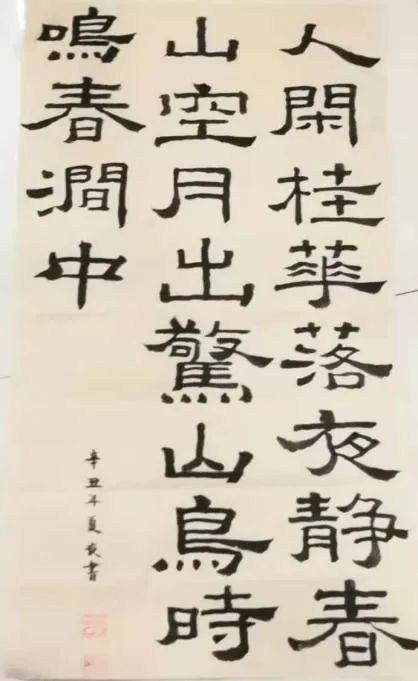 人閑桂華落夜静春
山空月出驚山鳥時
鳴春澗中
辛丑年夏 書